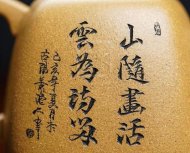 山隨畫活
雲為詩留
己亥年夏月
古陽羨